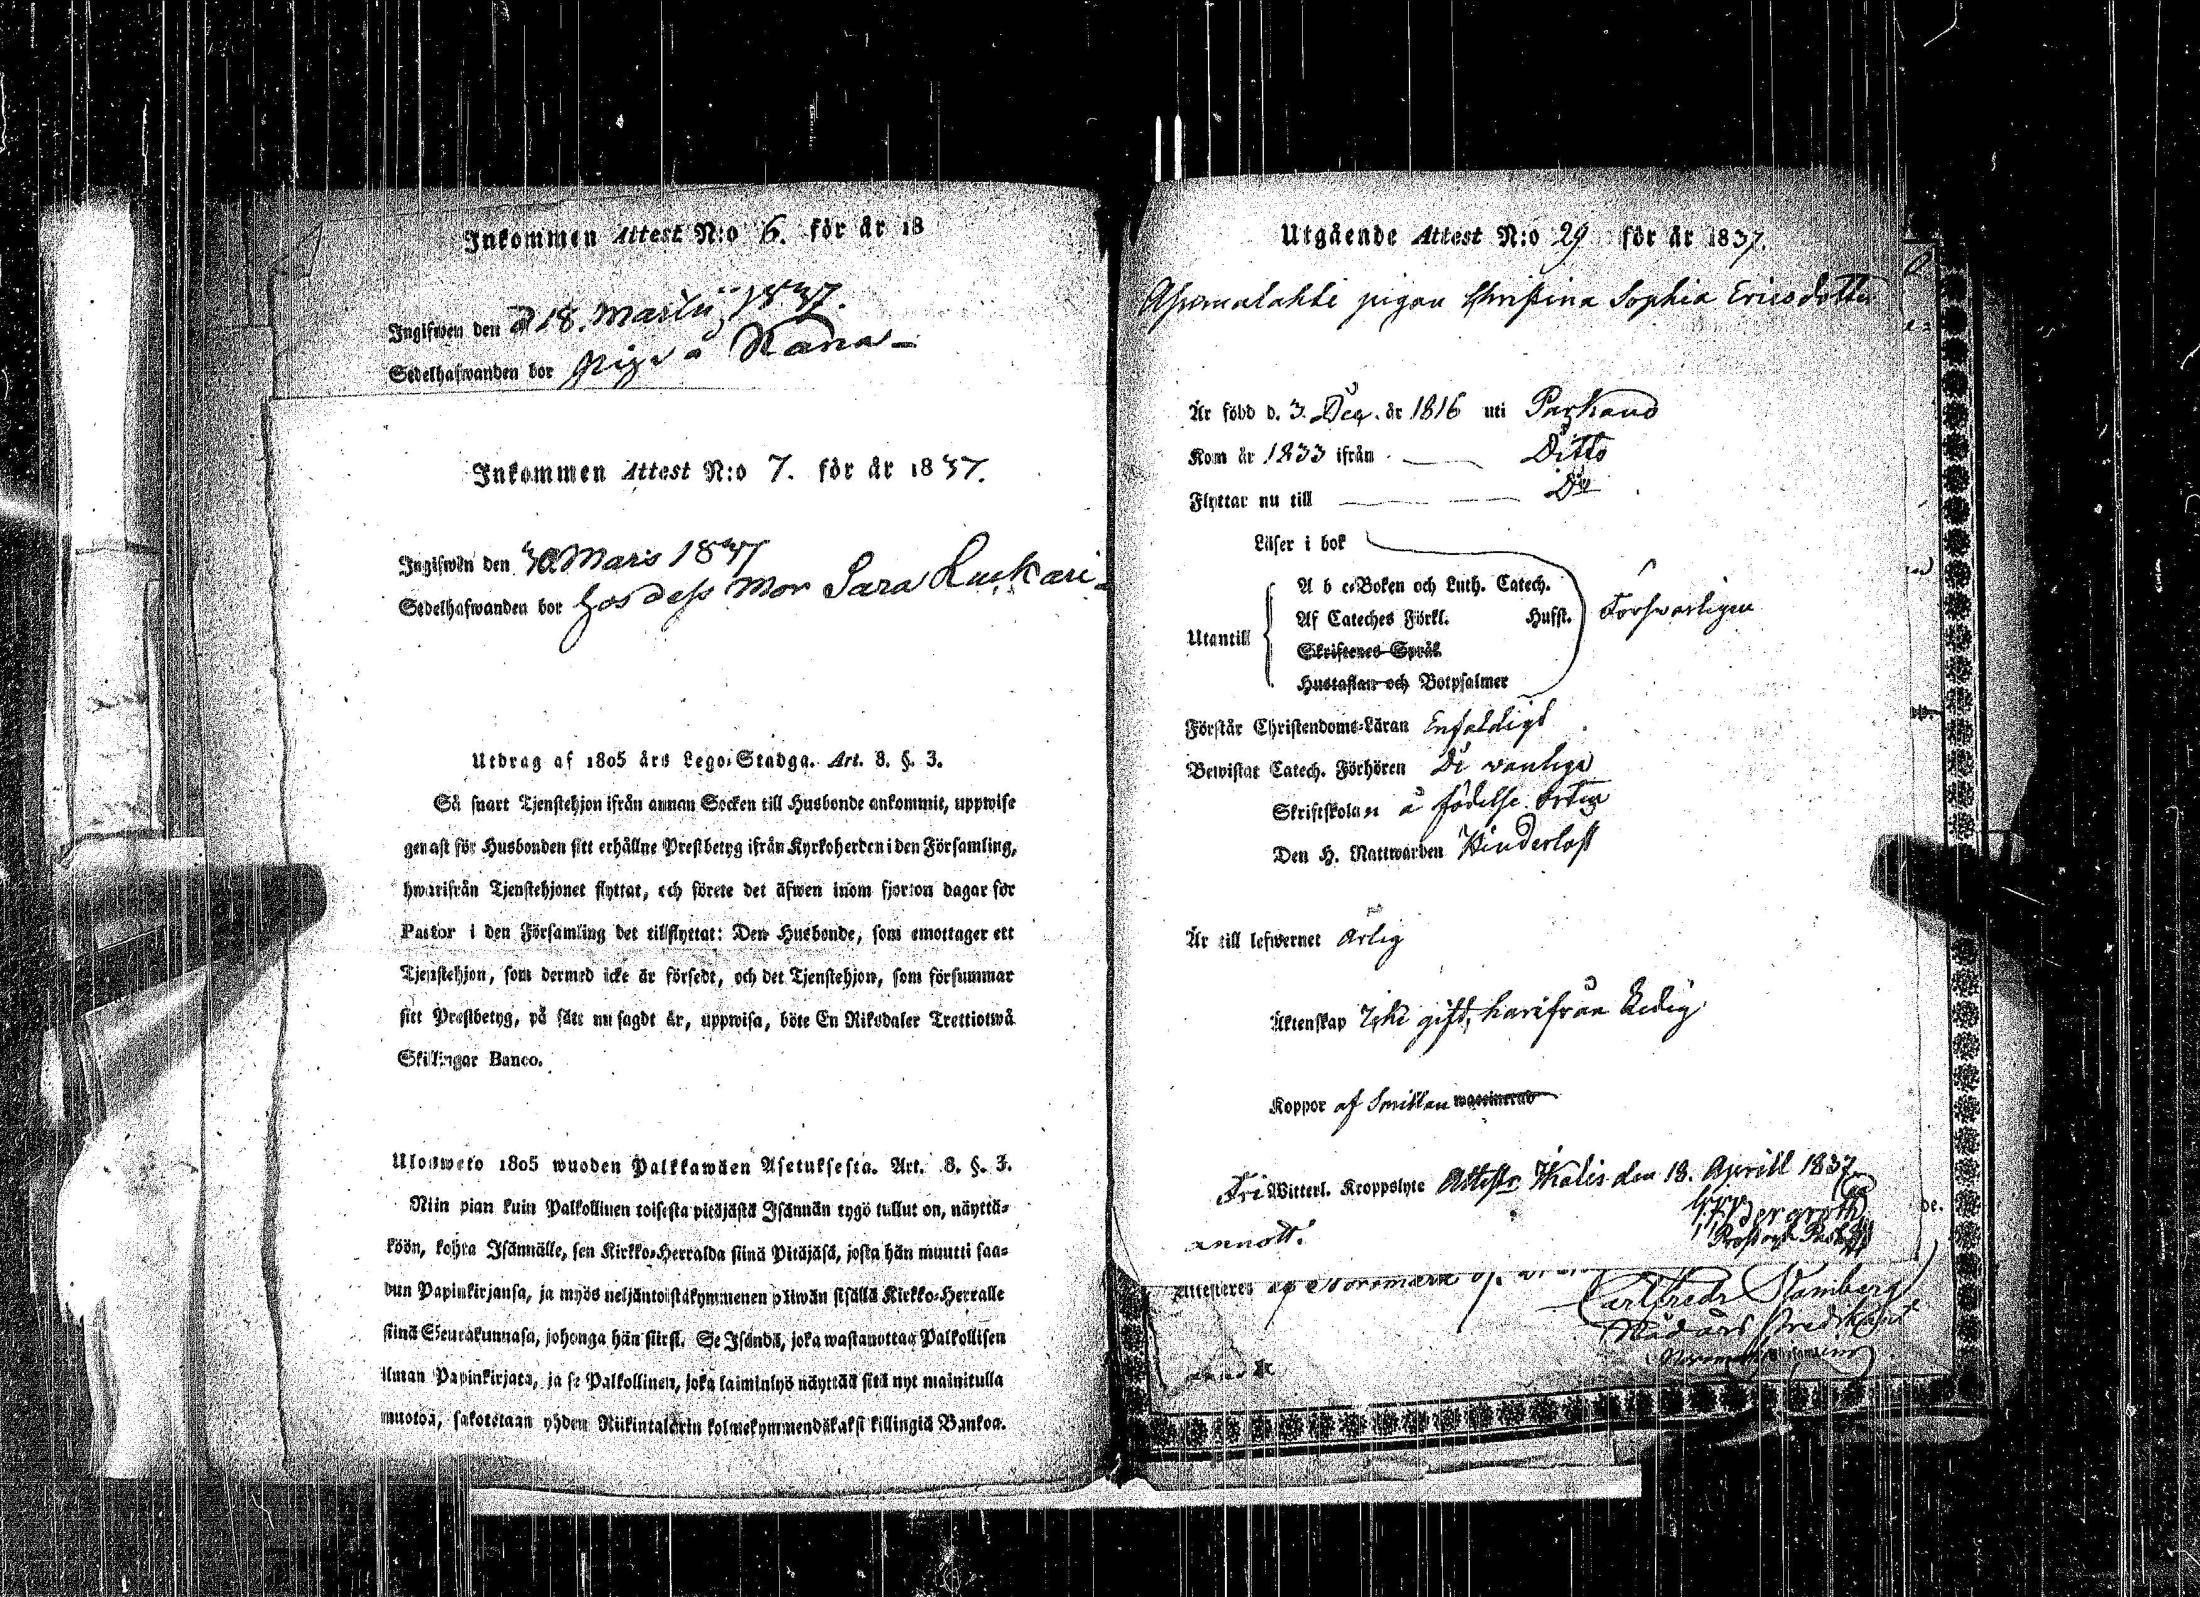 Inkommen Attest N:o 6. för år 18
Ingifwen den d 18. Martii 1837.
Sedelhafwanden bor piga å Kana
Inkommen Attest N:o 7. för år 1837.
Ingifwen den 30 Mars 1837
Sedelhafwanden bor hos dess Mor Sara Luckari
Utdrag af 1805 års Lego-Stadga. Art. 8. §. 3.
Så snart Tjenstehjon ifrån annan Socken till Husbonde ankommit, uppwise
genast för Husbonden sitt erhållne Prestbetyg ifrån Kyrkoherden i den Församling,
hwarifrån Tjenstehjonet flyttat, och förete det äfwen inom fjorton dagar för
Pastor i den Församling det tillflyttat: Den Husbonde, som emottager ett
Tjenstehjon, som dermed icke är försedt, och det Tjenstehjon, som försummar
sitt Prestbetyg, på sätt nu sagdt är, uppwisa, böte En Riksdaler Trettiotwå
Skillingar Banco.
Ulosweto 1805 wuoden Palkkawäen Asetuksesta. Art. 8. §. 3.
Niin pian kuin Palkollinen toisesta pitäjästä Isännän tygö tullut on, näyttä-
köön, kohta Isännälle, sen Kirkko-Herralda siinä Pitäjäsä, josta hän muutti saa-
dun Papinkirjansa, ja myös neljäntoistakymmenen päiwän sisällä Kirkko-Herralle
siinä Seurakunnasa, johonga hän siirsi. Se Isändä, joka wastanottaa Palkollisen
ilman Papinkirjata, ja se Palkollinen, joka laiminlyö näyttää sitä nyt mainitulla
muotoa, sakotetaan yhden Riikintalarin kolmekymmendäkaksi killingiä Bankoa.
Utgående Attest N:o 29 för år 1837.
pigan Christina Sophia Ericsdotter
Är född d. 3. Dec. år 1816 uti Parkano
Kom år 1833 ifrån Ditto
Flyttar nu till Do
Läser i bok
A b c-Boken och Luth. Catech.
Af Cateches Förkl. Husst. Försvarligen
Utantill
Skriftenes Språk
Hustaflan och Botpsalmer
Förstår Christendoms-Läran Enfaldigt
Bewistat Catech. Förhören De vanliga
Skriftskolan å födelse orten
Den H. Nattwarden Hinderlöst
Är till lefwernet ärlig
Äktenskap Icke gift, härifrån Ledig
Koppor af Smittan waccinerad
Fri Witterl. Kroppslyte Attestr. Ikalis den 18. Aprill 1837
Bergroth
annott.
Attesteras af Norrmark
Carl Fredr Stamberg